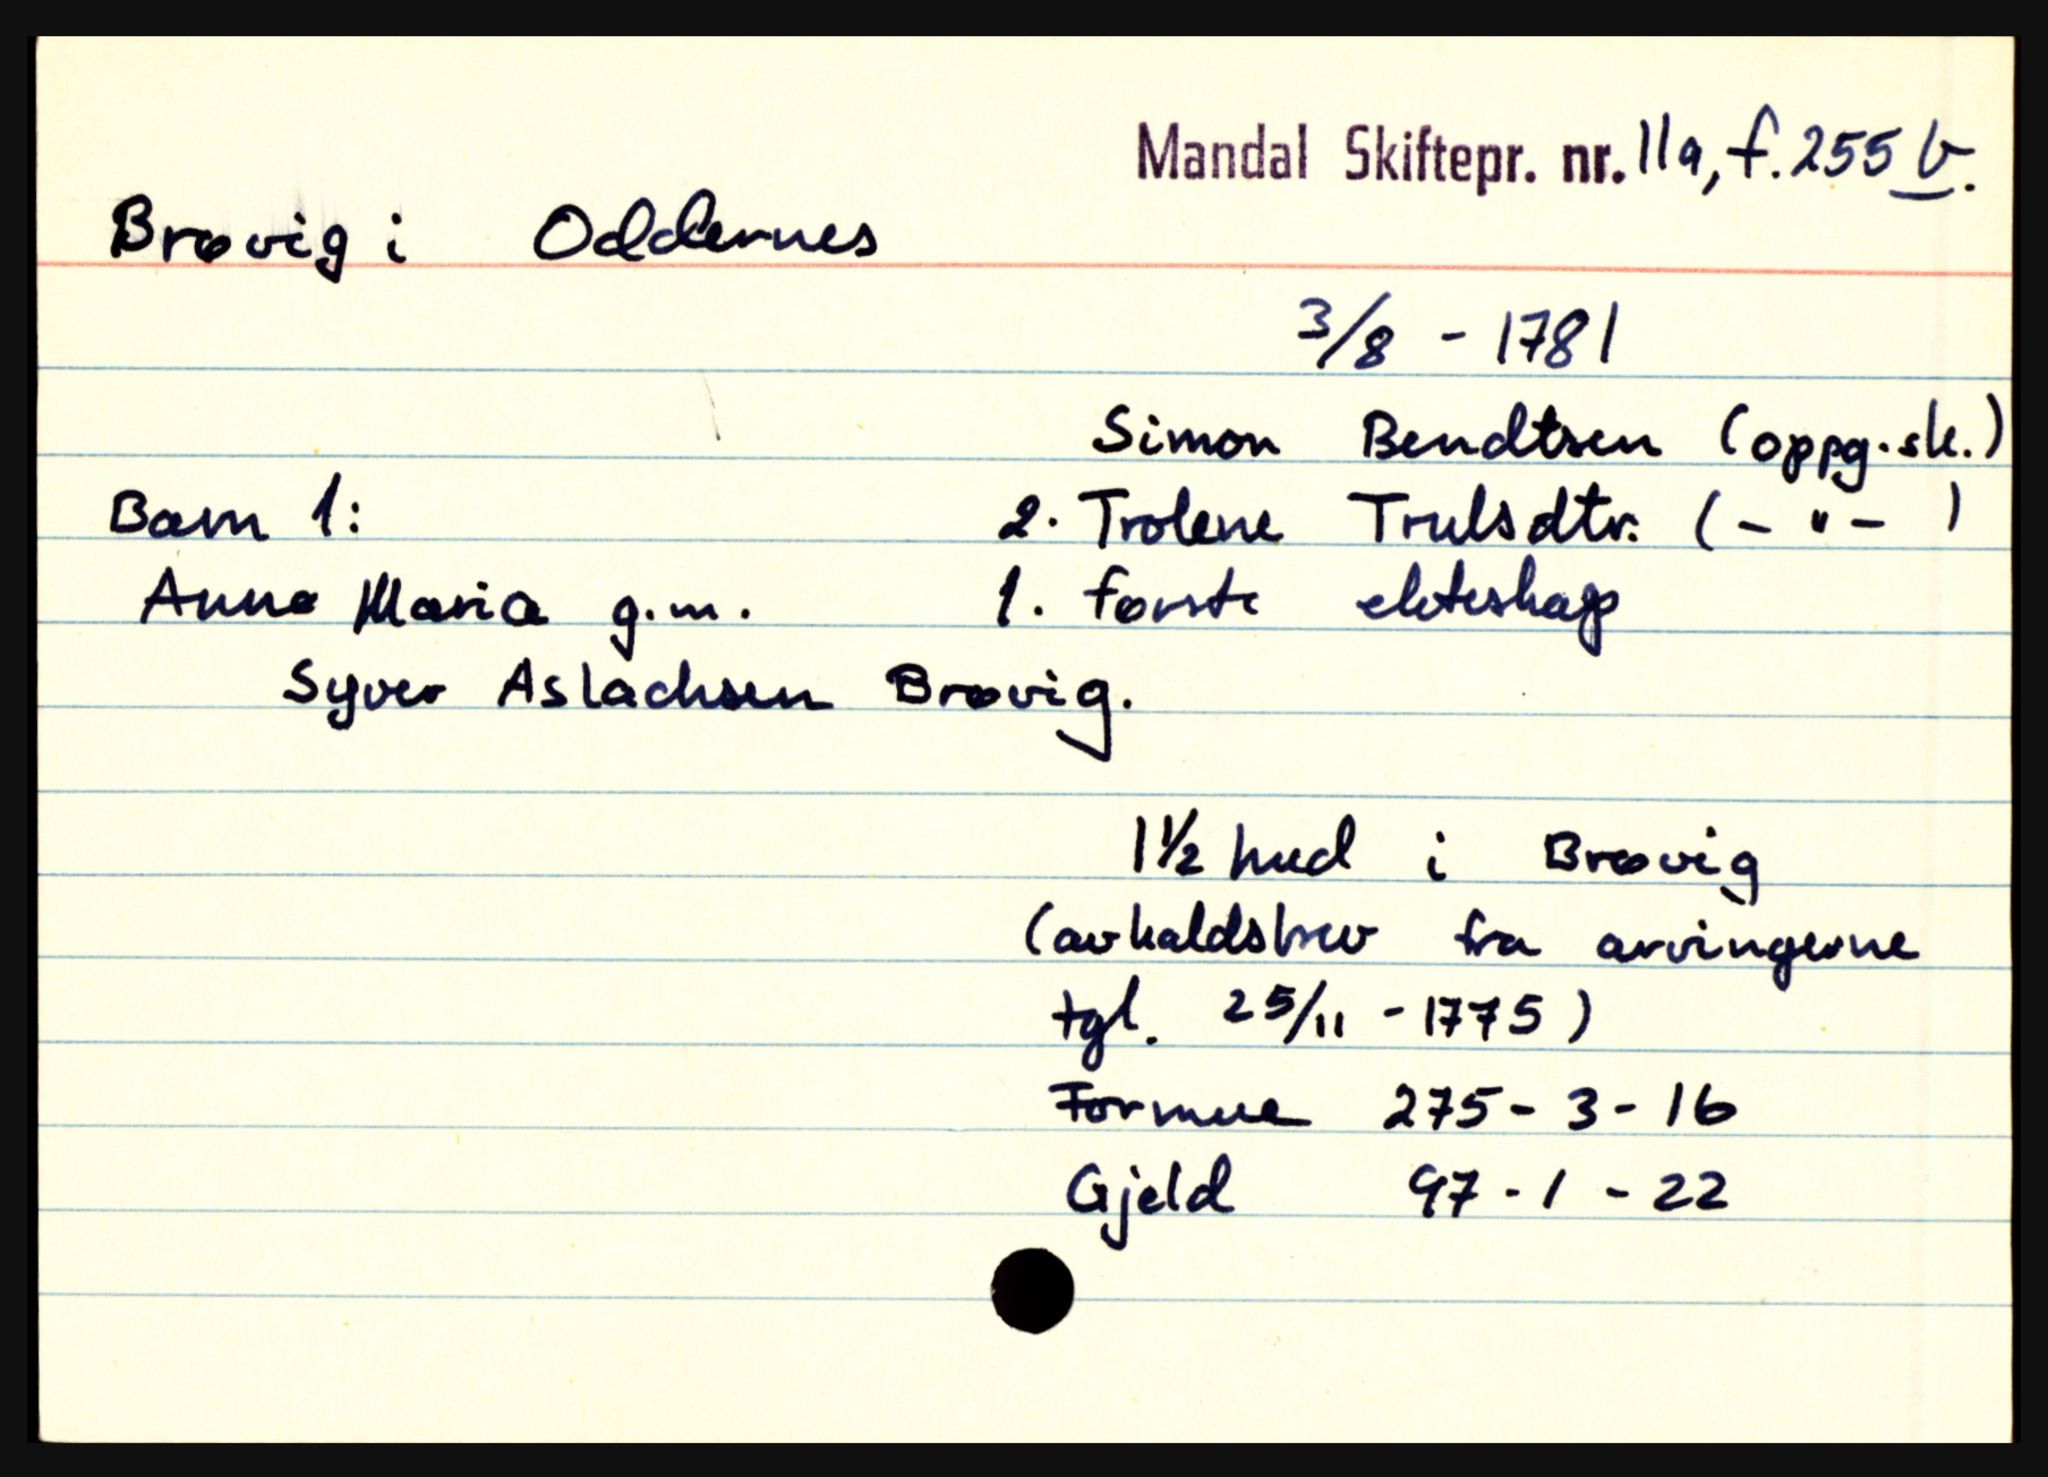 Mandal Skiftepr. nr. 11a, f. 255 b.
Brøvig i Oddernes
3/8 - 1781
Simon Bendtsen (oppg. sk.)
Barn 1: 2. Trolene Trulsdtr. ( - " - )
Anna Maria g.m. 1. første ekteskap
Syver Aslachsen Brøvig.
1 1/2 hud i Brøvig
(avkaldsbrev fra arvingerne
tgl. 25/11 - 1775)
Formue 275 - 3 - 16
Gjeld 97 - 1 - 22